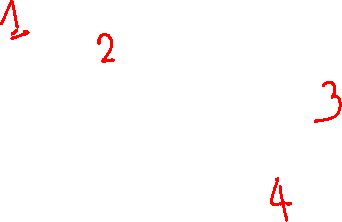 1.
2
3
4